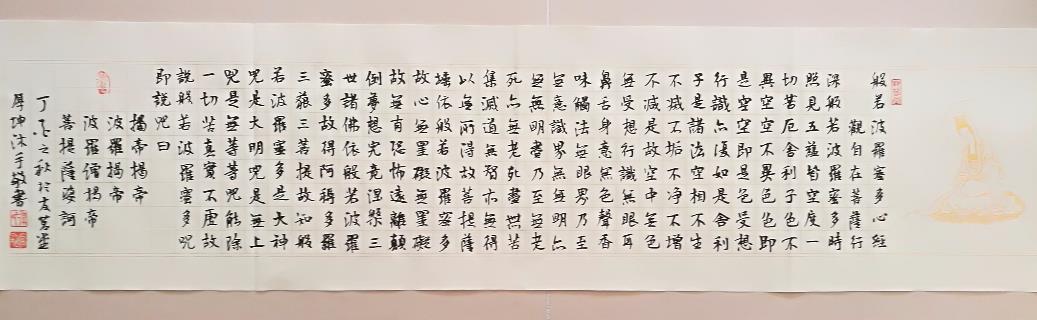 般若波羅蜜多心經
觀自在菩薩行
深般若波羅蜜多時
照見五蘊皆空度一
切苦厄舍利子色不
異空空不異色色即
是空空即是色受想
行識亦復如是舍利
子是諸法空相不生
不滅不垢不淨不增
不減是故空中無色
無受想行識無眼耳
鼻舌身意無色聲香
味觸法無眼界乃至
無意識界無無明亦
無無明盡乃至無老
死亦無老死盡無苦
集滅道無智亦無得
以無所得故菩提薩
埵依般若波羅蜜多
故心無罣礙無罣礙
故無有恐怖遠離顛
倒夢想究竟涅槃三
世諸佛依般若波羅
蜜多故得阿耨多羅
三藐三菩提故知般
若波羅蜜多是大神
咒是大明咒是無上
咒是無等等咒能除
一切苦真實不虛故
說般若波羅蜜多咒
即說咒曰
揭帝揭帝
波羅揭帝
波羅僧揭帝
菩提薩婆訶
丁亥之秋於友茗堂
坤沐手敬書